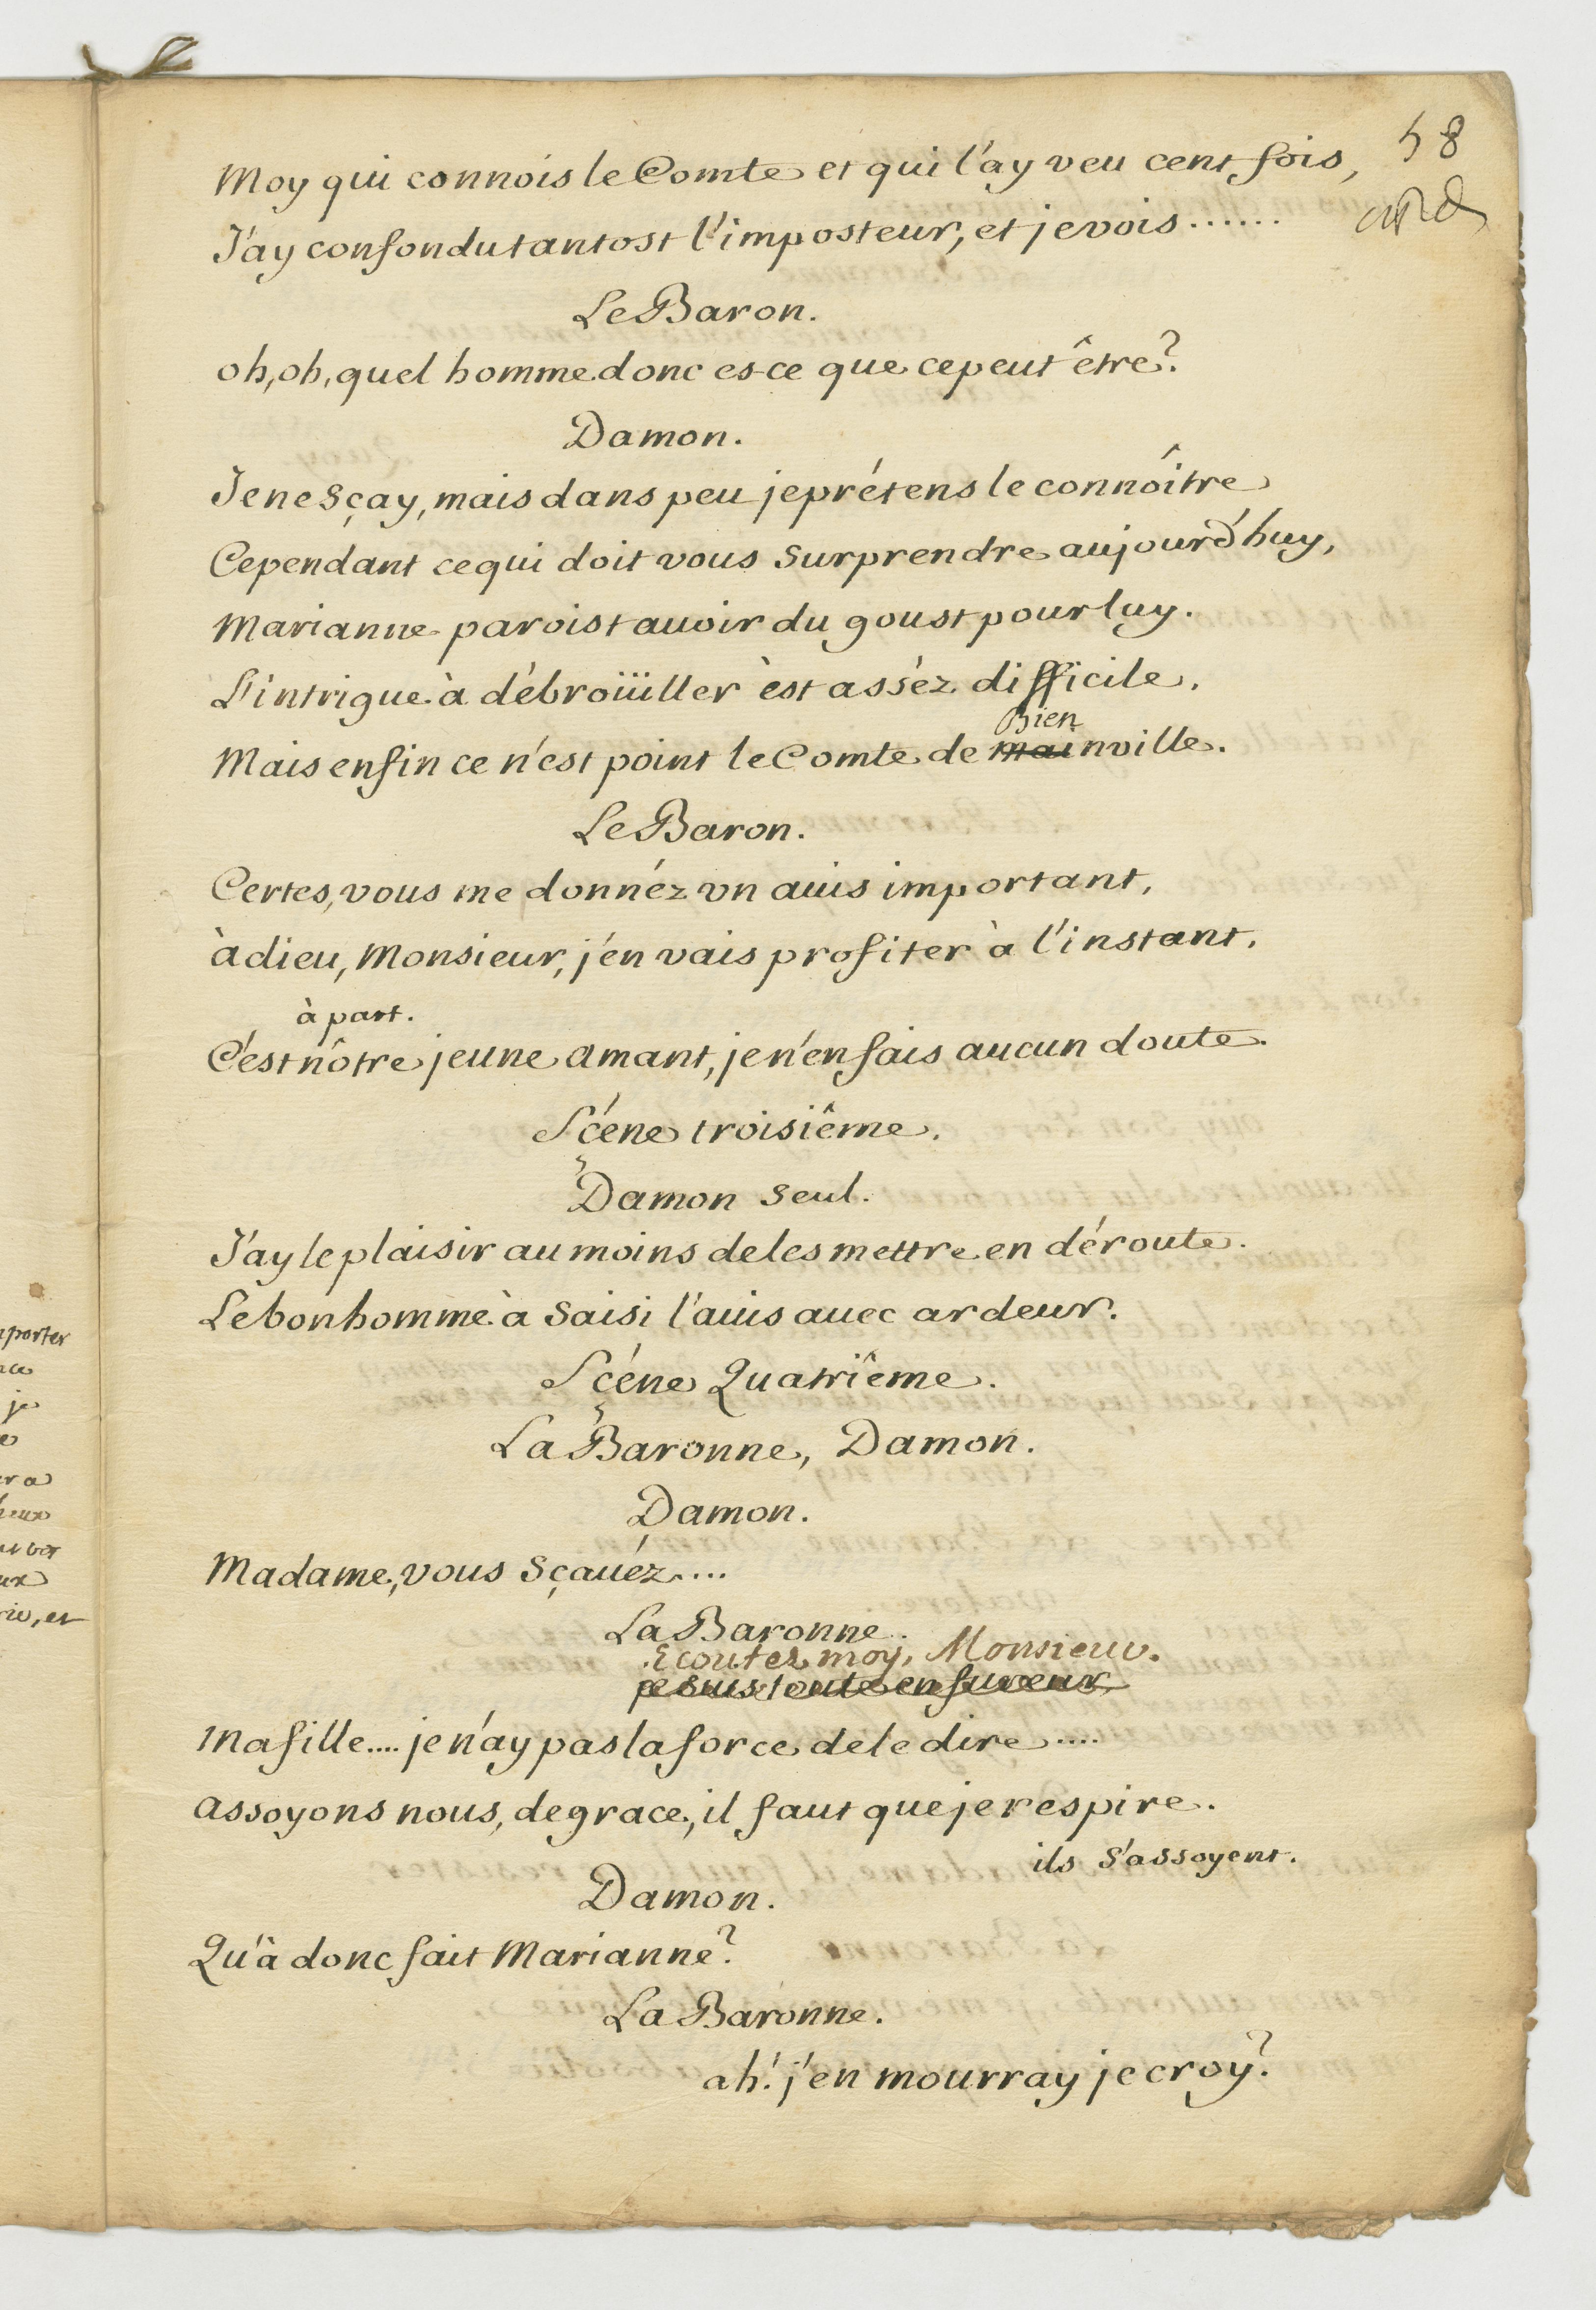 58
Moy qui connois le Comte et qui l'ay veu cent fois,
J'ay confondu tantost l'imposteur, et je vois ......
Le Baron.
oh, oh, quel homme donc es-ce que ce peut être?
Damon.
Je ne sçay, mais dans peu je prétens le connoître
Cependant ce qui doit vous surprendre aujourd'huy,
Marianne paroist auoir du goust pour luy.
L'intrigue à débroüiller èst asséz difficile.
Bien
Mais enfin ce n'est point le Comte de mainville.
Le Baron.
Certes, vous me donnéz vn auis important,
àdieu, Monsieur, j'en vais profiter à l'instant.
à part.
C'est nôtre jeune amant, je n'en fais aucun doute.
Sçéne troisiême.
Damon seul.
J'ay le plaisir au moins de les mettre en déroute.
Le bon homme à saisi l'auis auec ardeur.
Sçéne Quatriême.
La Baronne, Damon.
Damon.
Madame, vous sçauéz....
La Baronne.
Ecoutez moy, Monsieur.
je suis toute en fureur
Ma fille.... je n'ay pas la force de le dire ....
assoyons nous, de grace, il faut que je respire.
ils s'assoyent.
Damon.
Qu'à donc fait Marianne?
La Baronne.
ah! j'en mourray je croy?
porter
je
rie, et